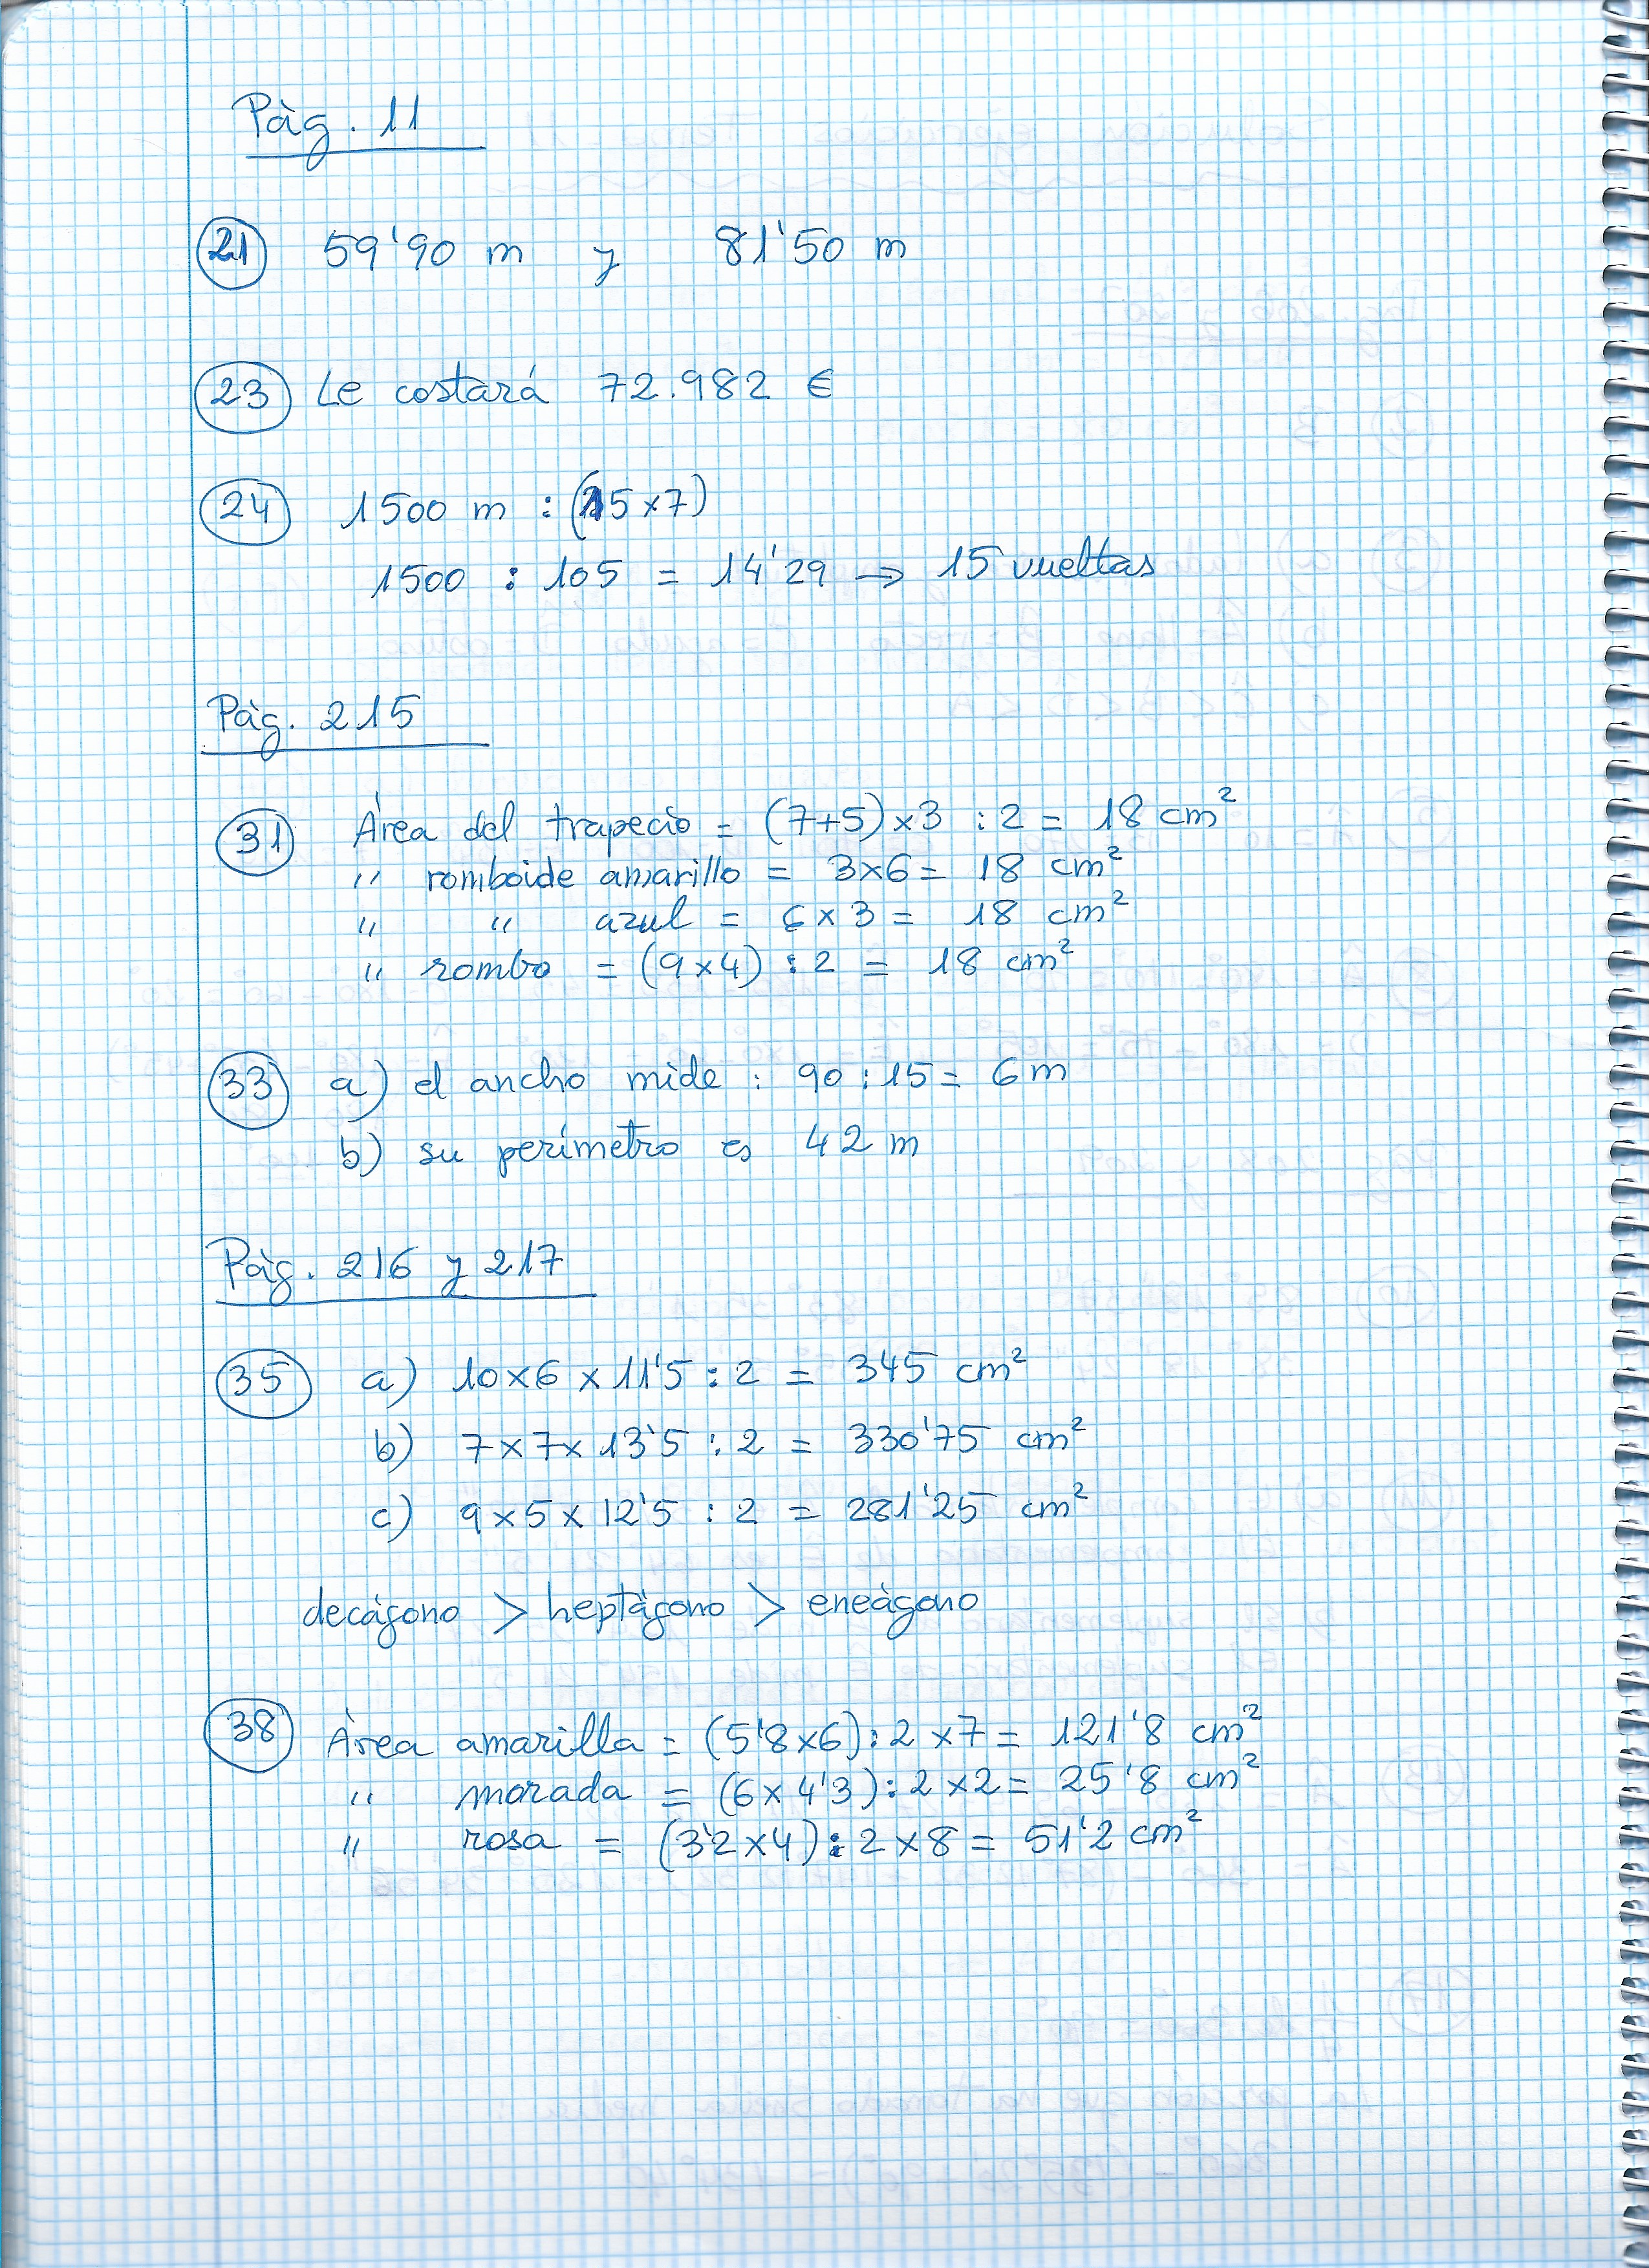 Pàg. 11
21 59'90 m y 81'50 m
23 Le costará 72.982 €
24 1500 m : (15x7)
1500 : 105 = 14'29 → 15 vueltas
Pàg. 215
31 Àrea del trapecio = (7+5)x3 : 2 = 18 cm²
" romboide amarillo = 3x6 = 18 cm²
" " azul = 6x3 = 18 cm²
" rombo = (9x4) : 2 = 18 cm²
33 a) el ancho mide : 90 : 15 = 6 m
b) su perímetro es 42 m
Pàg. 216 y 217
35 a) 10x6x11'5 : 2 = 345 cm²
b) 7x7x13'5 : 2 = 330'75 cm²
c) 9x5x12'5 : 2 = 281'25 cm²
decágono > heptàgono > eneàgono
38 Àrea amarilla = (5'8x6) : 2 x7 = 121'8 cm²
" morada = (6x4'3) : 2 x2 = 25'8 cm²
" rosa = (3'2x4) : 2 x8 = 51'2 cm²